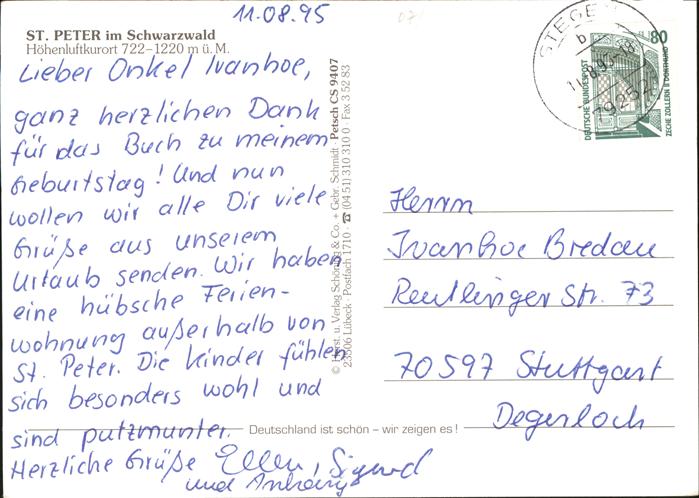 11.08.95
ST. PETER im Schwarzwald
Höhenluftkurort 722–1220 m ü. M.
Lieber Onkel Ivanhoe,
ganz herzlichen Dank
für das Buch zu meinem
Geburtstag! Und nun
wollen wir alle Dir viele
Grüße aus unserem
Urlaub senden. Wir haben
eine hübsche Ferien-
wohnung außerhalb von
St. Peter. Die Kinder fühlen
sich besonders wohl und
sind putzmunter.
Herzliche Grüße Ellen, Sigurd
und
Deutschland ist schön – wir zeigen es !
© Horst. u. Verlag Schöning & Co. + Gebr. Schmidt · Petsch CS 9407
23506 Lübeck · Postfach 1710 · ☎ (04 51) 310 310 0 · Fax 3 52 83
STEGEN
b
79252
DEUTSCHE BUNDESPOST
80
ZECHE ZOLLERN II DORTMUND
Herrn
Ivanhoe Bredau
Reutlinger Str. 73
70597 Stuttgart
Degerloch